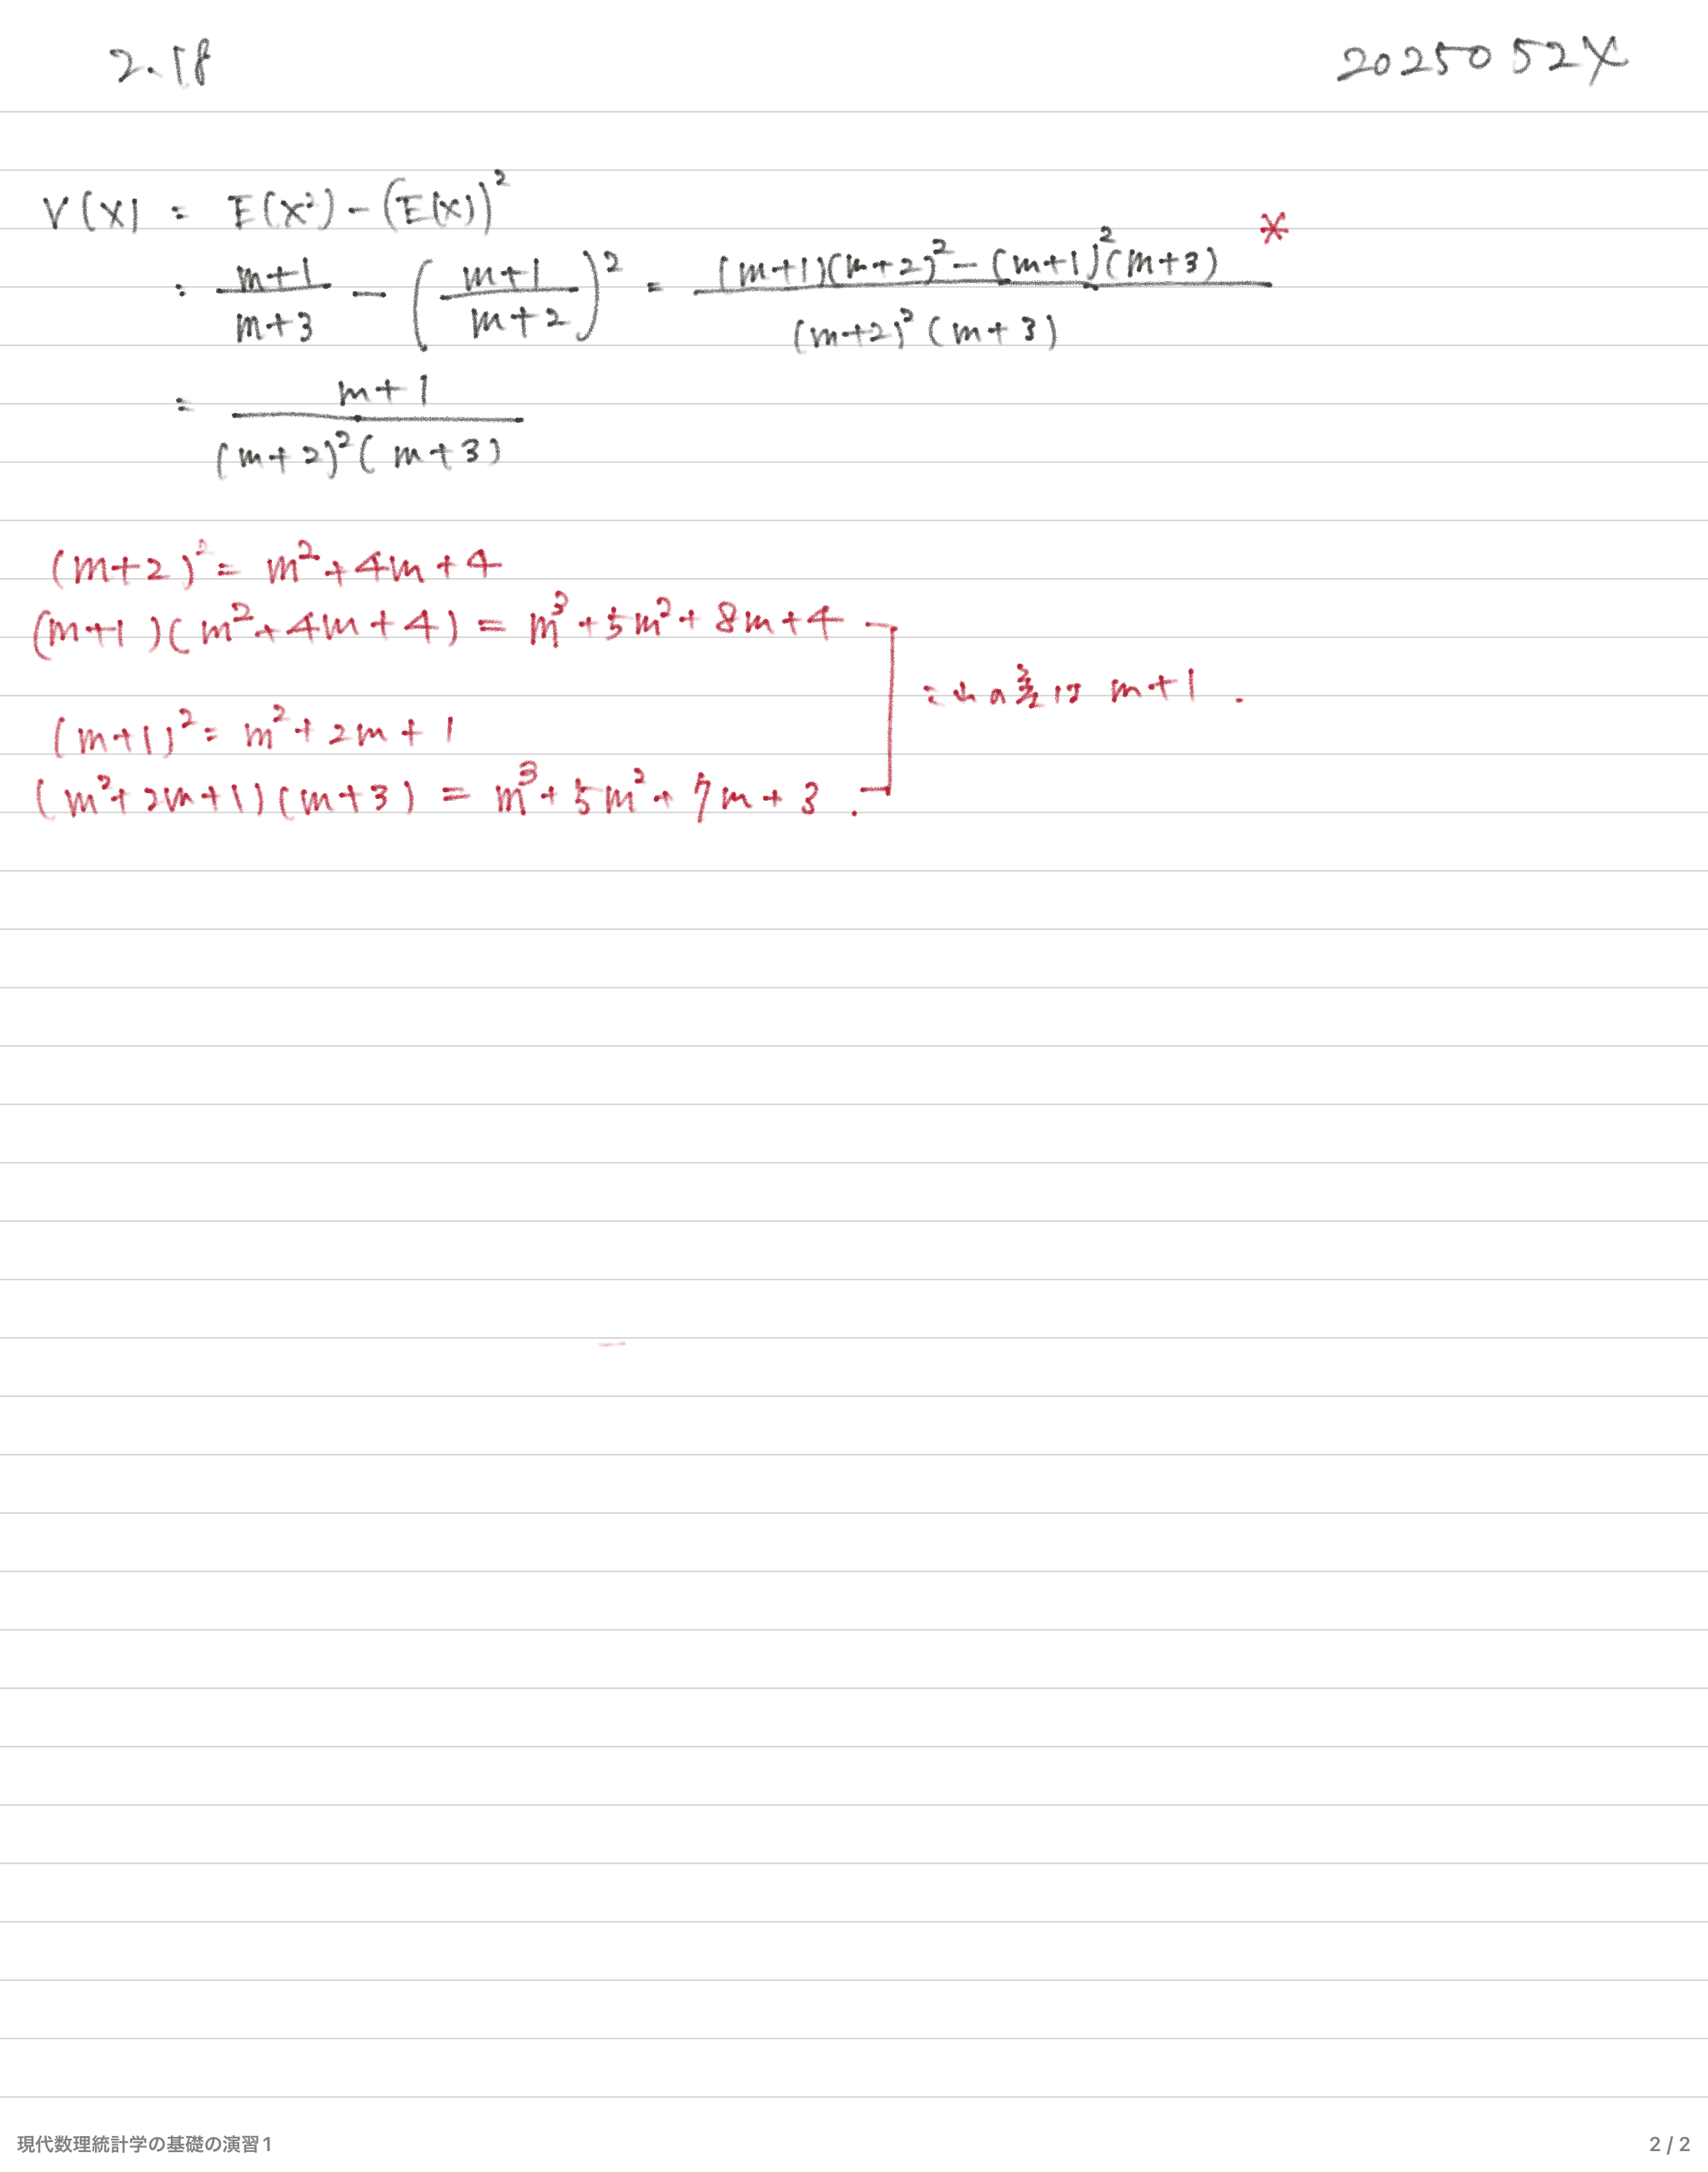 2.18
2025052X
V(X) = E(X²) - (E(X))²
= \frac{m+1}{m+3} - \left(\frac{m+1}{m+2}\right)^2 = \frac{(m+1)(m+2)^2 - (m+1)^2(m+3)}{(m+2)^2(m+3)} *
= \frac{m+1}{(m+2)^2(m+3)}
(m+2)² = m²+4m+4
(m+1)(m²+4m+4) = m³+5m²+8m+4
この差は m+1.
(m+1)² = m²+2m+1
(m²+2m+1)(m+3) = m³+5m²+7m+3.
現代数理統計学の基礎の演習1
2 / 2